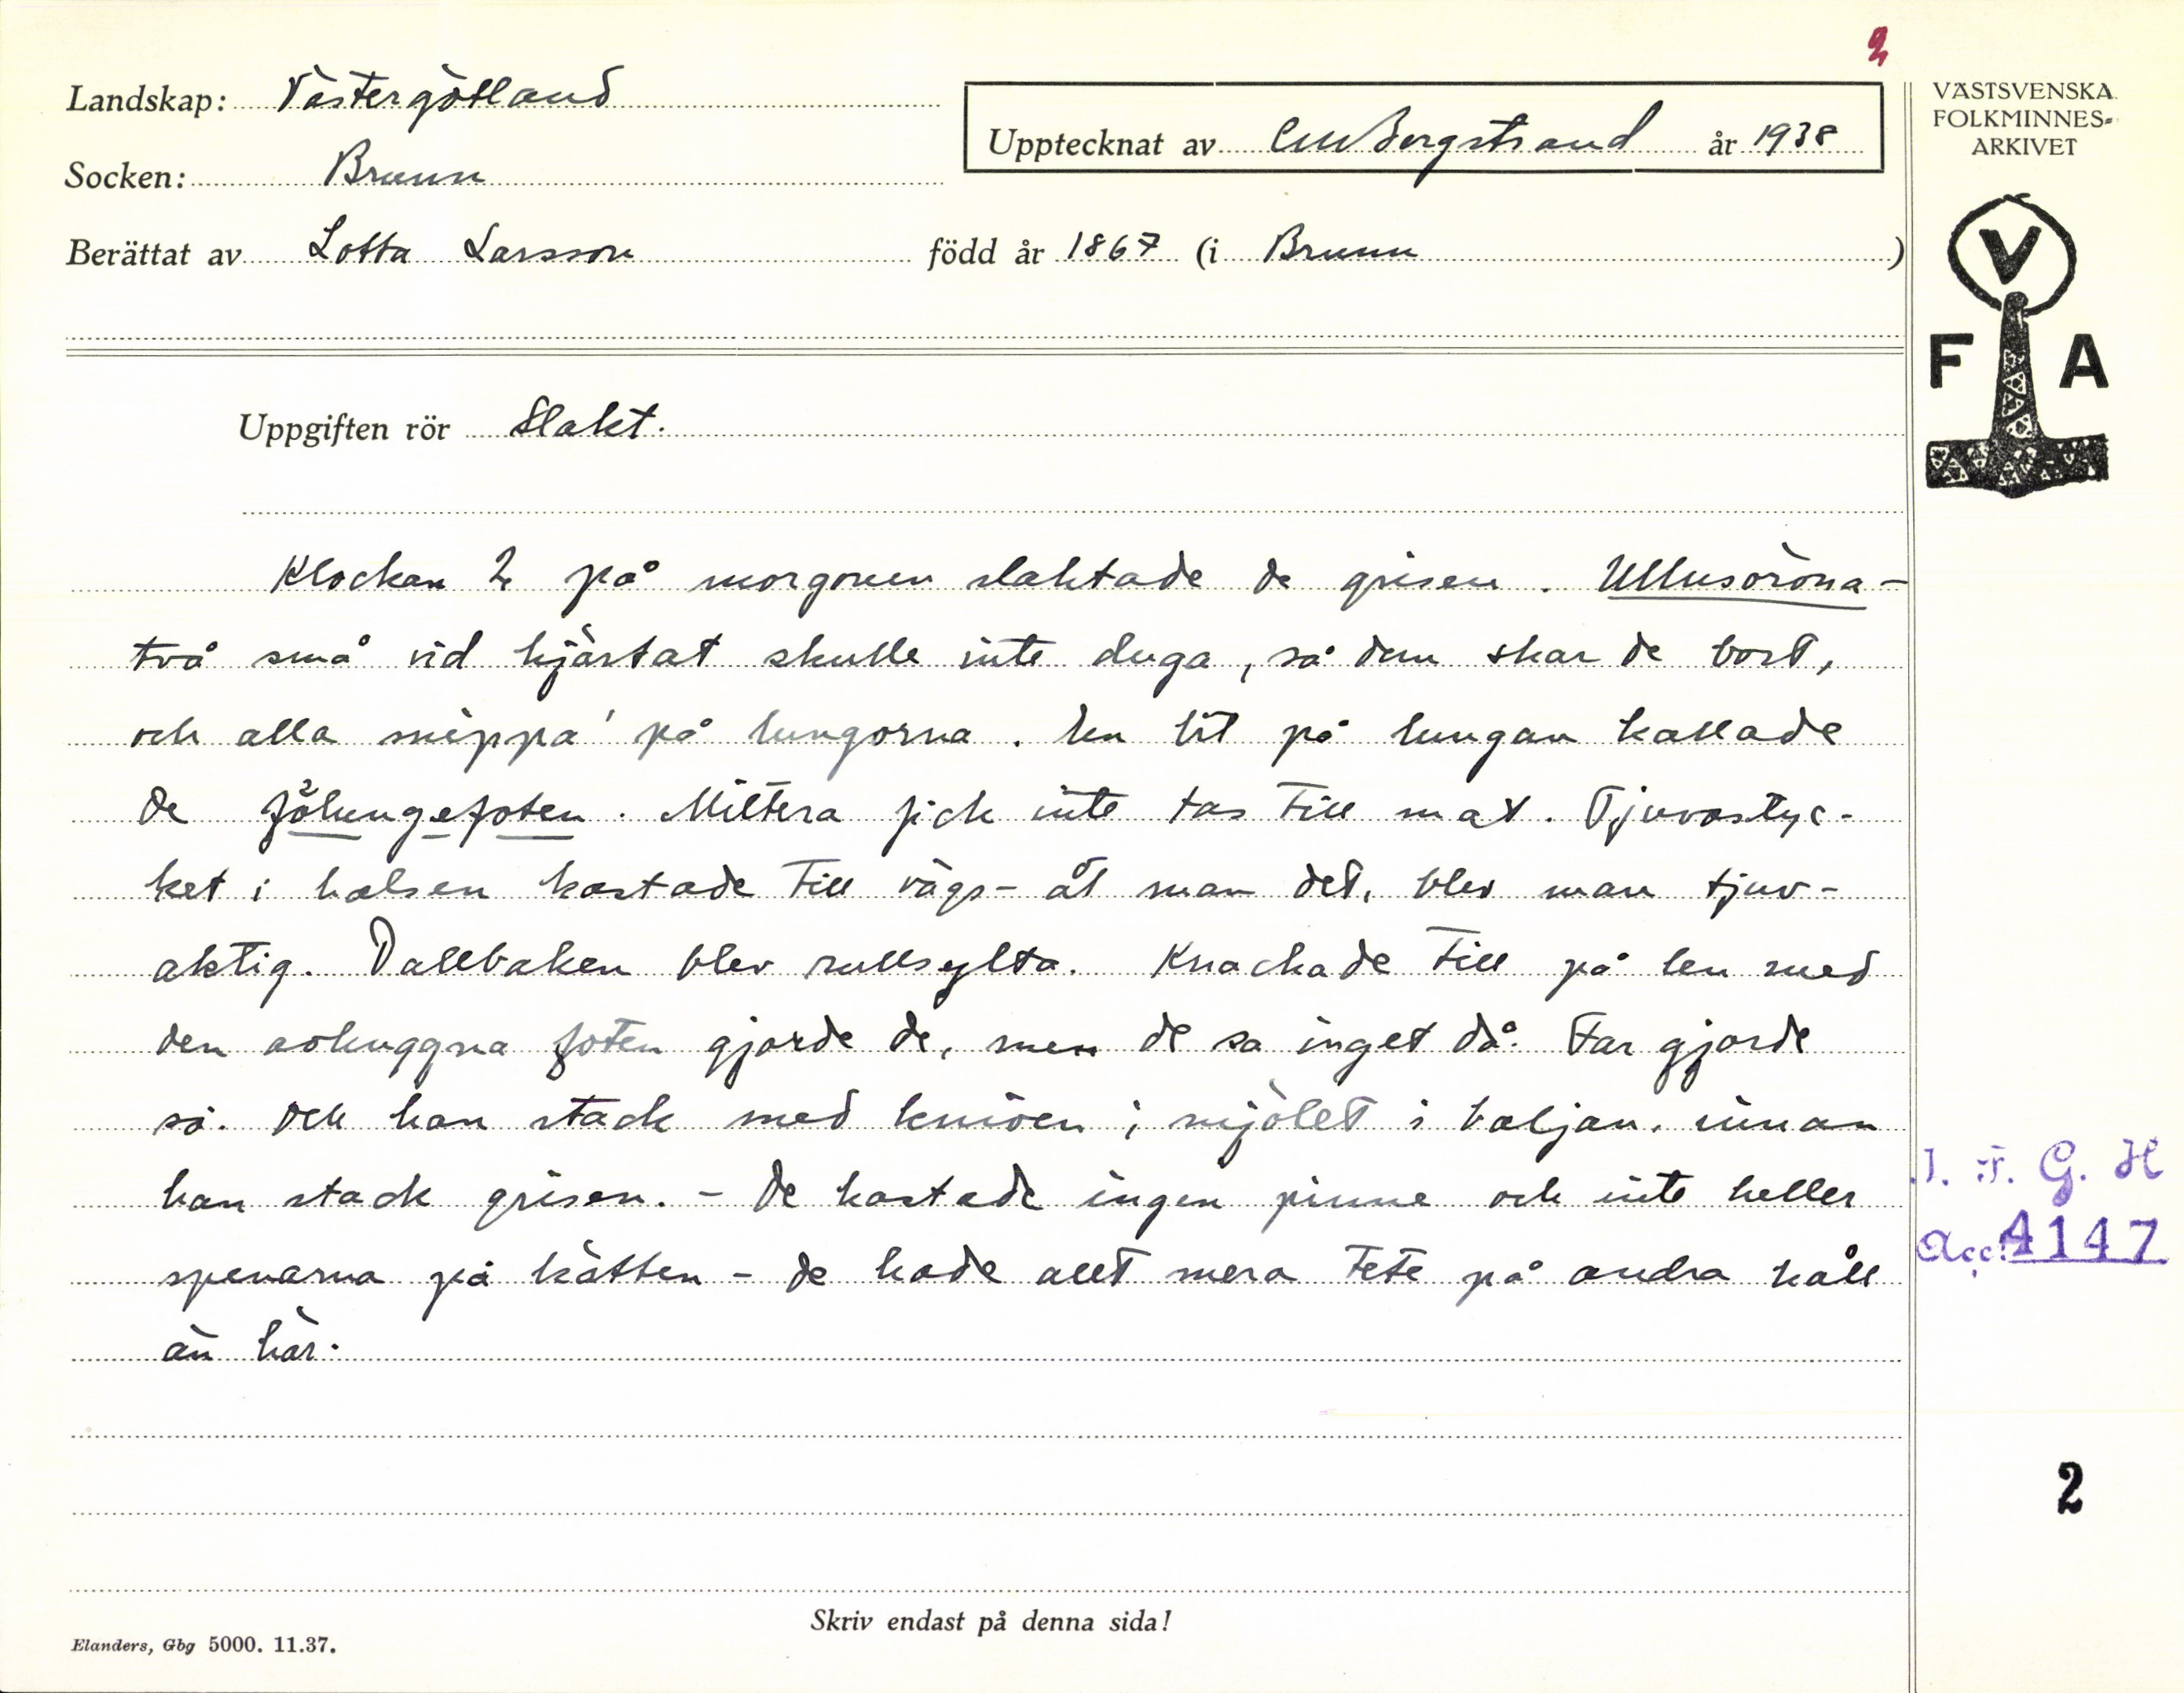 2
Landskap: Västergötland
Upptecknat av CMBergstrand år 1938
VÄSTSVENSKA
FOLKMINNES-
ARKIVET
Socken: Brunn
Berättat av Lotta Larsson född år 1867 (i Brunn)
V
F A
Uppgiften rör Slakt.
Klockan 2 på morgonen slaktade de grisen. Ullusörona -
två små vid hjärtat skulle inte duga, så dem skar de bort,
och alla snippa' på lungorna. En bit på lungan kallade
de fölungefoten. Miltera fick inte tas till mat. Tjuvastyc-
ket i halsen kastade till vägs - åt man det, blev man tjuv-
aktig. Dallbaken blev rullsylta. Knackade till på den med
den avhuggna foten gjorde de, men de sa inget då. Far gjorde
så. Och han stack med kniven i mjölet i baljan, innan
han stack grisen. - De kastade ingen pinne och inte heller
spenarna på kätten - de hade allt mera tete på andra håll
än här.
I. F. G. H
Acc. 4147
2
Skriv endast på denna sida!
Elanders, Gbg 5000. 11.37.